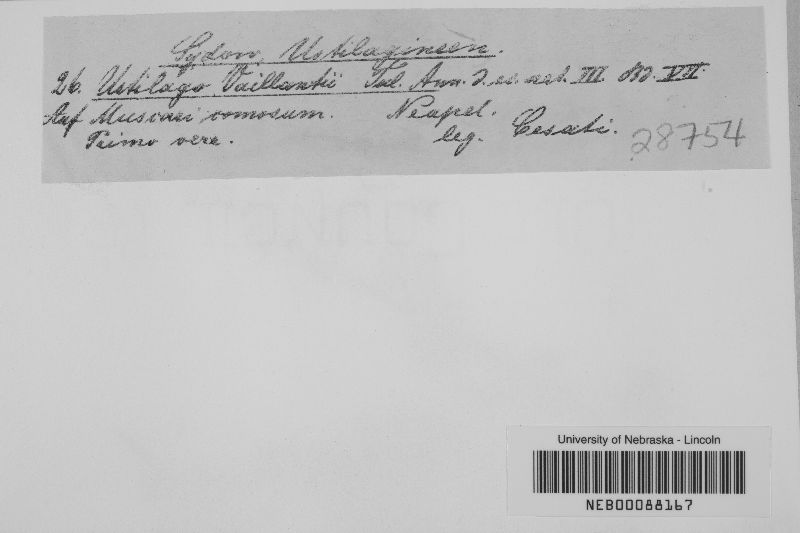 Sydow, Ustilagineen.
26. Ustilago Vaillantii Tul. Ann. d. sc. nat. III. Bd. VII.
Auf Muscari comosum. Neapel.
Primo vere. leg. Cesati.
28754
University of Nebraska - Lincoln
NEB00088167